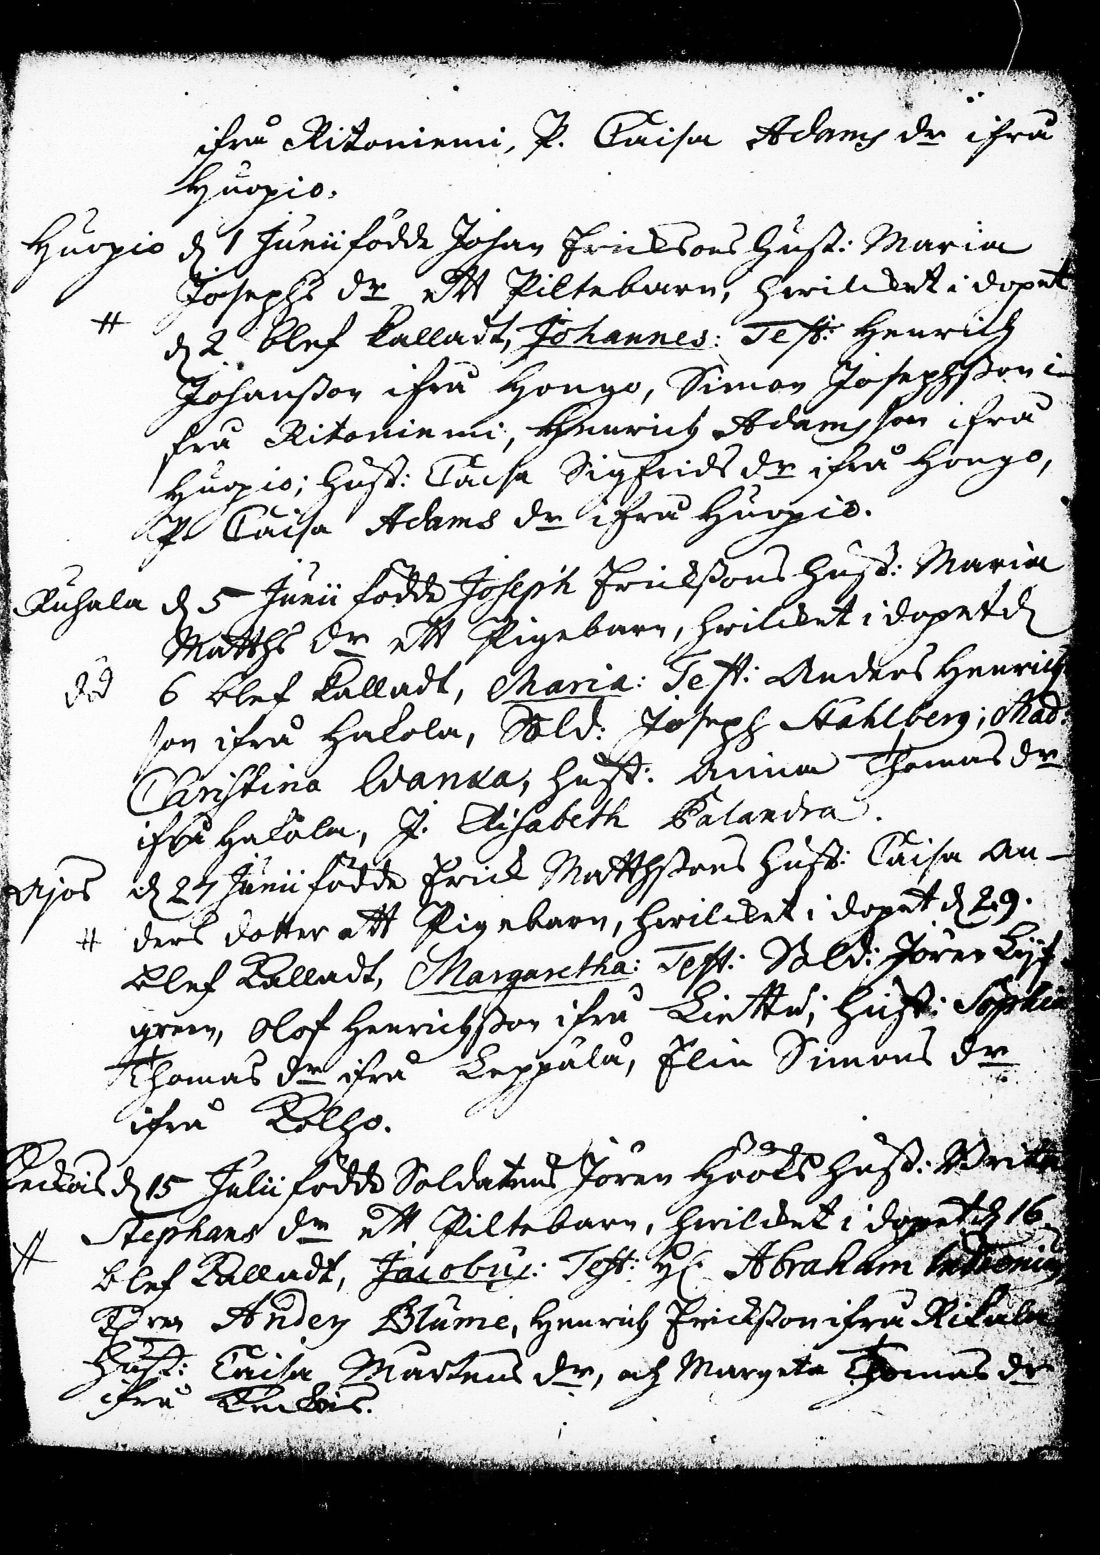 ifrå Ritoniemi, P. Caisa Adams dr ifrå
Huopio.
Huopio d 1 Junii födde Johan Ericksons Hust: Maria
Josephs dr ett Piltebarn, hwilcket i dopet
# d 2 blef kalladt, Johannes: Test: Henrich
Johansson ifrå Hongo, Simon Josephsson i-
frå Ritoniemi, Henrich Adamsson ifrå
Huopio; Hust: Caisa Sigfrids dr ifrå Hongo,
P. Caisa Adams dr ifrå Huopio.
Ruhala d 5 Junii födde Joseph Ericksons Hust: Maria
Matths dr ett Pigebarn, hwilcket i dopet d
död 6 blef kalladt, Maria: Test: Anders Henrich
son ifrå Hakola, Sold: Joseph Stahlberg; Mad:
Christina Wanxa, Hust: Anna Thomas dr
ifrå Hakola, J. Elisabeth Palandra.
Ajos d 27 Junii födde Erick Matthssons Hust: Caisa An-
# ders dotter ett Pigebarn, hwilcket i dopet d 29.
blef Kalladt, Margaretha: Test: Sold: Jören Löf-
green, Olof Henrichsson ifrå Liettu; Hust: Sophia
Thomas dr ifrå Leppälä, Elin Simons dr
ifrå Kolho.
Keckois d 15 Julii födde Soldatens Jören Hööks Hust: Britta
Stephans dr ett Piltebarn, hwilcket i dopet d 16
# blef Kalladt, Jacobus: Test: H. Abraham
Anders Blume, Henrich Ericksson ifrå Rikala
Hust: Caisa Mårtens dr, och Margeta Thomas dr
ifrå Keckois.